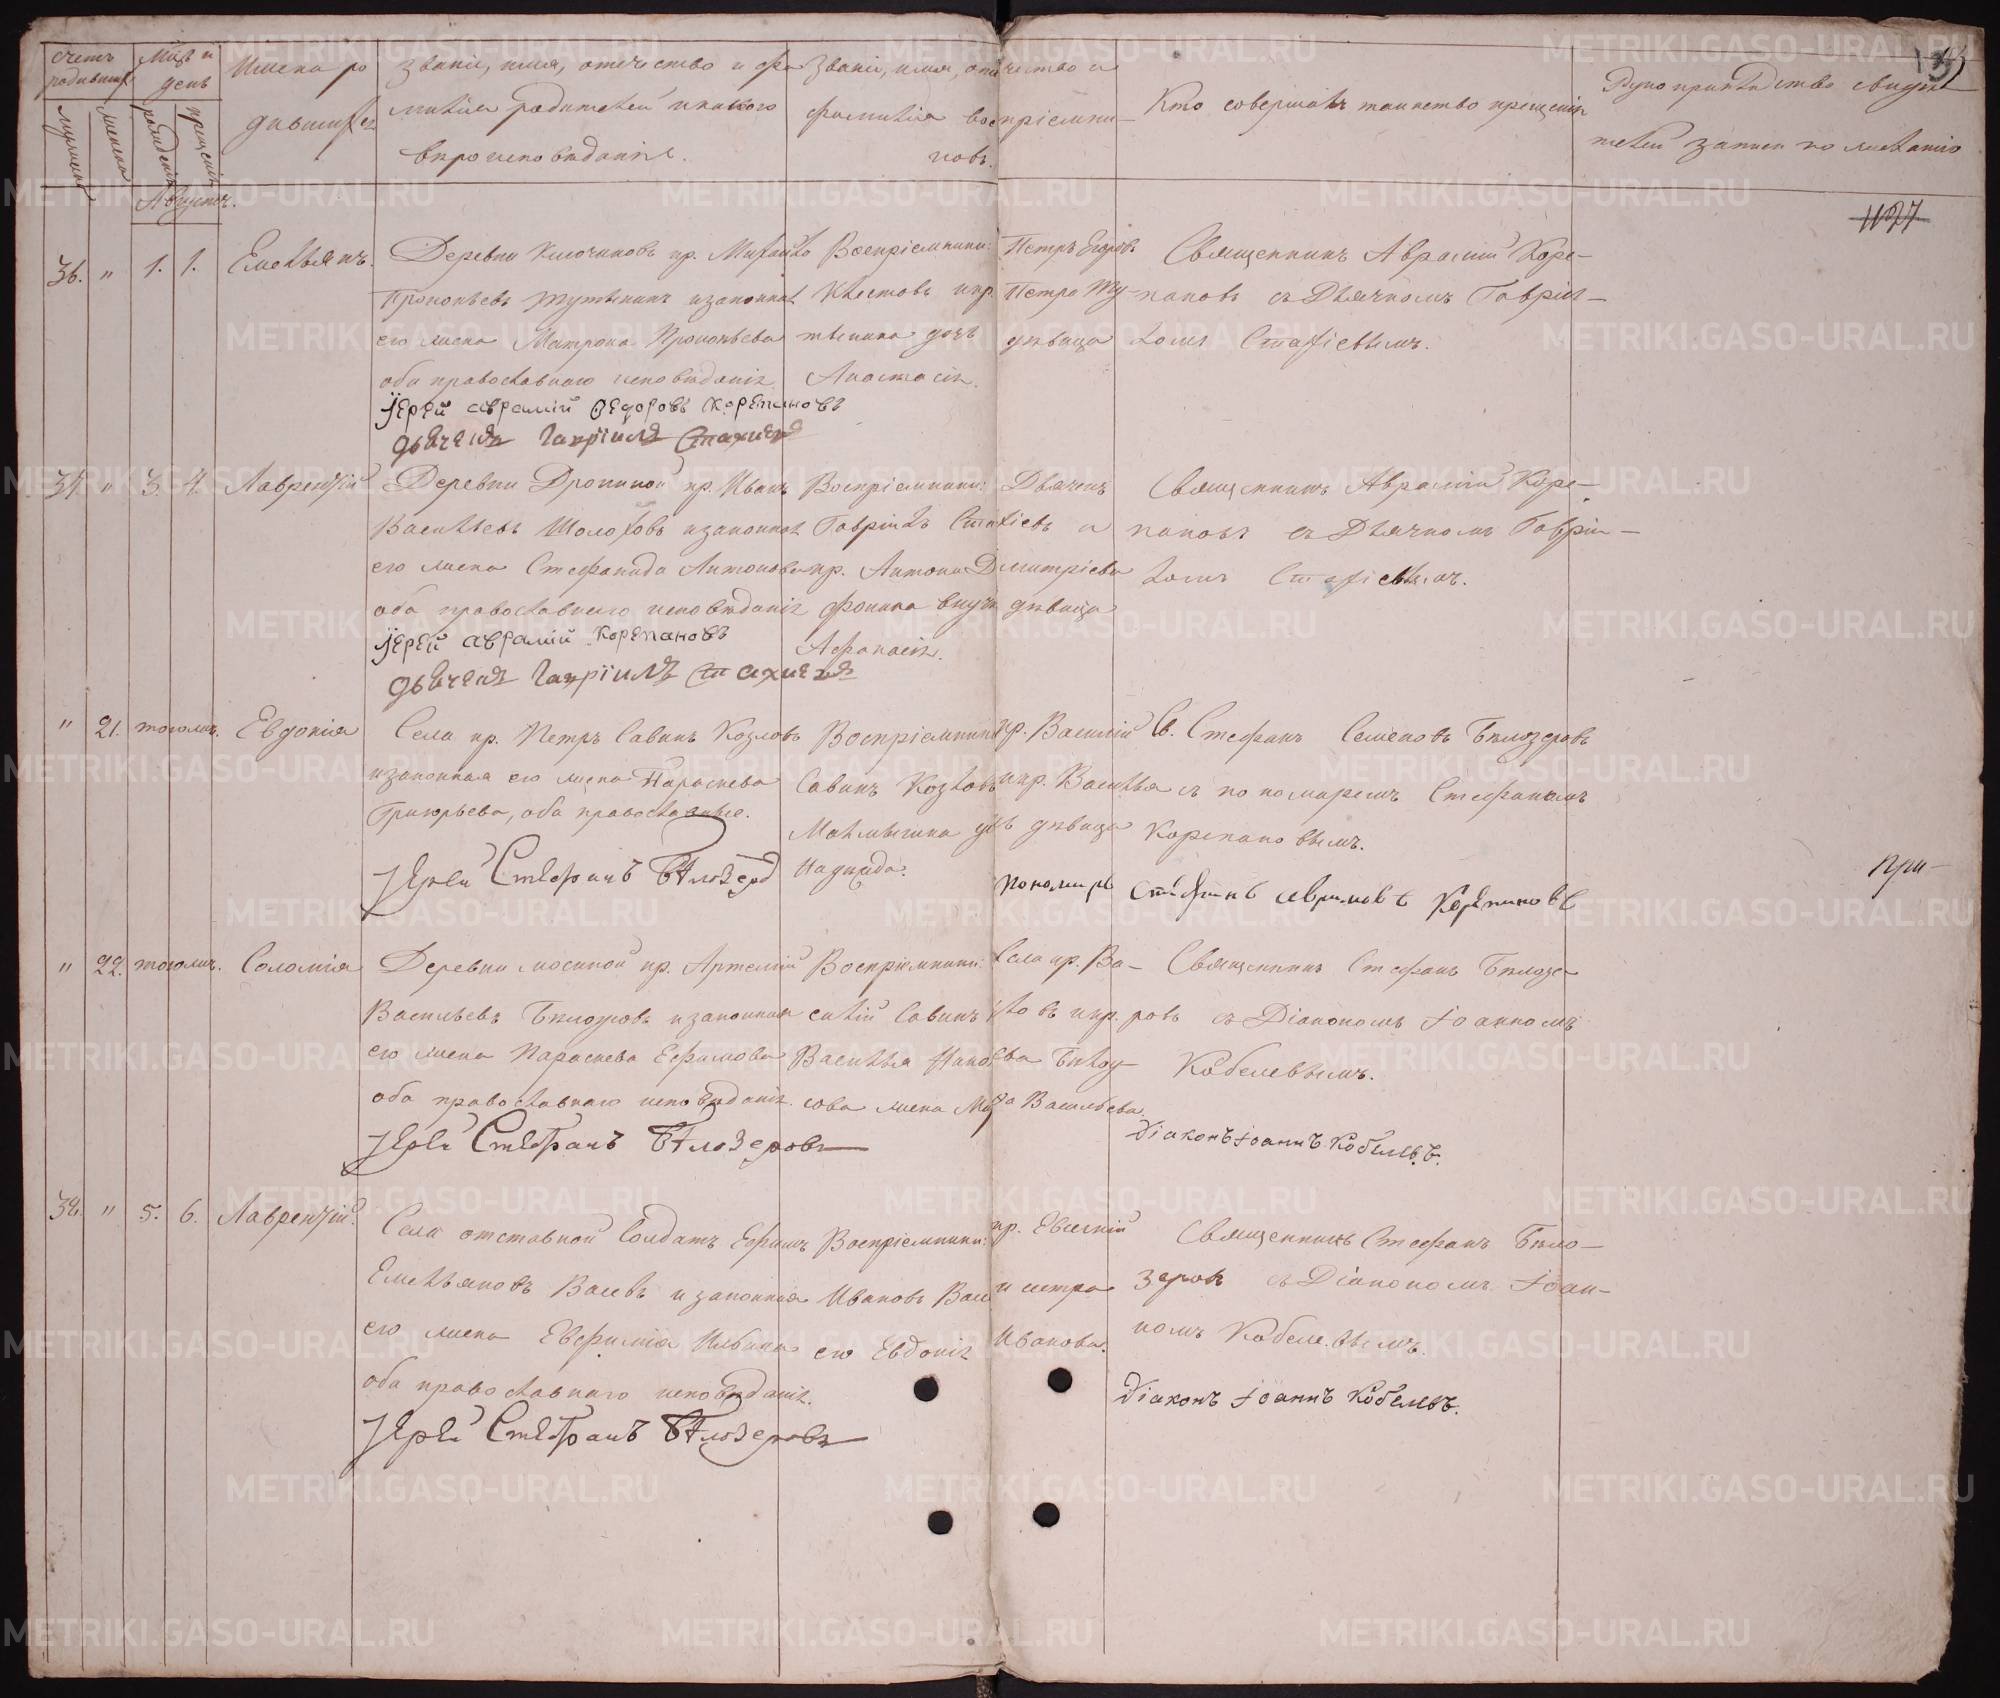 счетъ родившихся
мужеска
женска
Мѣс. и день
рожденія
крещенія
Имена родившихся
Званіе, имя, отчество и фамилія родителей и какого вѣроисповѣданія.
Званіе, имя, отчество и фамилія воспріемниковъ.
Кто совершалъ таинство крещенія
Рукоприкладство свидѣтелей записи по желанію
Августъ.
1197
36. " 1. 1. Емельянъ.
Деревни Ключиковъ кр. Михайло
Прокопьевъ Тутынинъ и законная
его жена Матрона Прокопьева
оба православнаго исповѣданія.
Воспріемники: Петръ Егоровъ
и кр. Петра Ту-
тынина дочь дѣвица
Анастасія.
Священникъ Аврамій Коре-
пановъ съ Дьячкомъ Гавріи-
ломъ Стахіевымъ.
Іерей Аврамій Ѳедоровъ Корепановъ
Дьячекъ Гавріилъ Стахиевъ
37. " 3. 4. Лаврентій
Деревни Дрониной кр. Иванъ
Васильевъ Шолоховъ и законная
его жена Стефанида Антонова
оба православнаго исповѣданія
Воспріемники: Дьячекъ
Гавріилъ Стахіевъ и
кр. Антона Димитріева
Фонина внука дѣвица
Афанасія.
Священникъ Аврамій Коре-
пановъ съ Дьячкомъ Гавріи-
ломъ Стахіевымъ.
Іерей Аврамій Корепановъ
Дьячекъ Гавріилъ Стахиевъ
" 21. тогожъ. Евдокія
Села кр. Петръ Савинъ Козловъ
и законная его жена Параскева
Григорьева, оба православные.
Воспріемники кр. Василій
Савинъ Козловъ и кр. Василья
дочь дѣвица
Надежда.
Св. Стефанъ Семеновъ Бѣлозеровъ
съ пономаремъ Стефаномъ
Корепановымъ.
Іерей Стефанъ Бѣлозеров
Пономарь Стефанъ Аврамовъ Корепановъ
При-
" 22. тогожъ. Соломія
Деревни Мосиной кр. Артемій
Васильевъ Бѣлоусовъ и законная
его жена Параскева Ефимова
оба православнаго исповѣданія.
Воспріемники: Села кр. Ва-
силій Савинъ Козловъ и кр.
Василья Бѣлоу-
сова жена Васильева.
Священникъ Стефанъ Бѣлозе-
ровъ съ Діакономъ Іоанномъ
Кобелевымъ.
Іерей Стефанъ Бѣлозеровъ
Діаконъ Іоаннъ Кобелевъ.
38. " 5. 6. Лаврентій.
Села отставной Солдатъ Ефимъ
Емельяновъ Валевъ и законная
его жена Евфимія Ильина
оба православнаго исповѣданія.
Воспріемники: кр. Евгеній
Ивановъ Валевъ и сестра
его Евдокія Иванова.
Священникъ Стефанъ Бѣло-
зеровъ съ Діакономъ Іоан-
номъ Кобелевымъ.
Іерей Стефанъ Бѣлозеровъ
Діаконъ Іоаннъ Кобелевъ.
METRIKI.GASO-URAL.RU